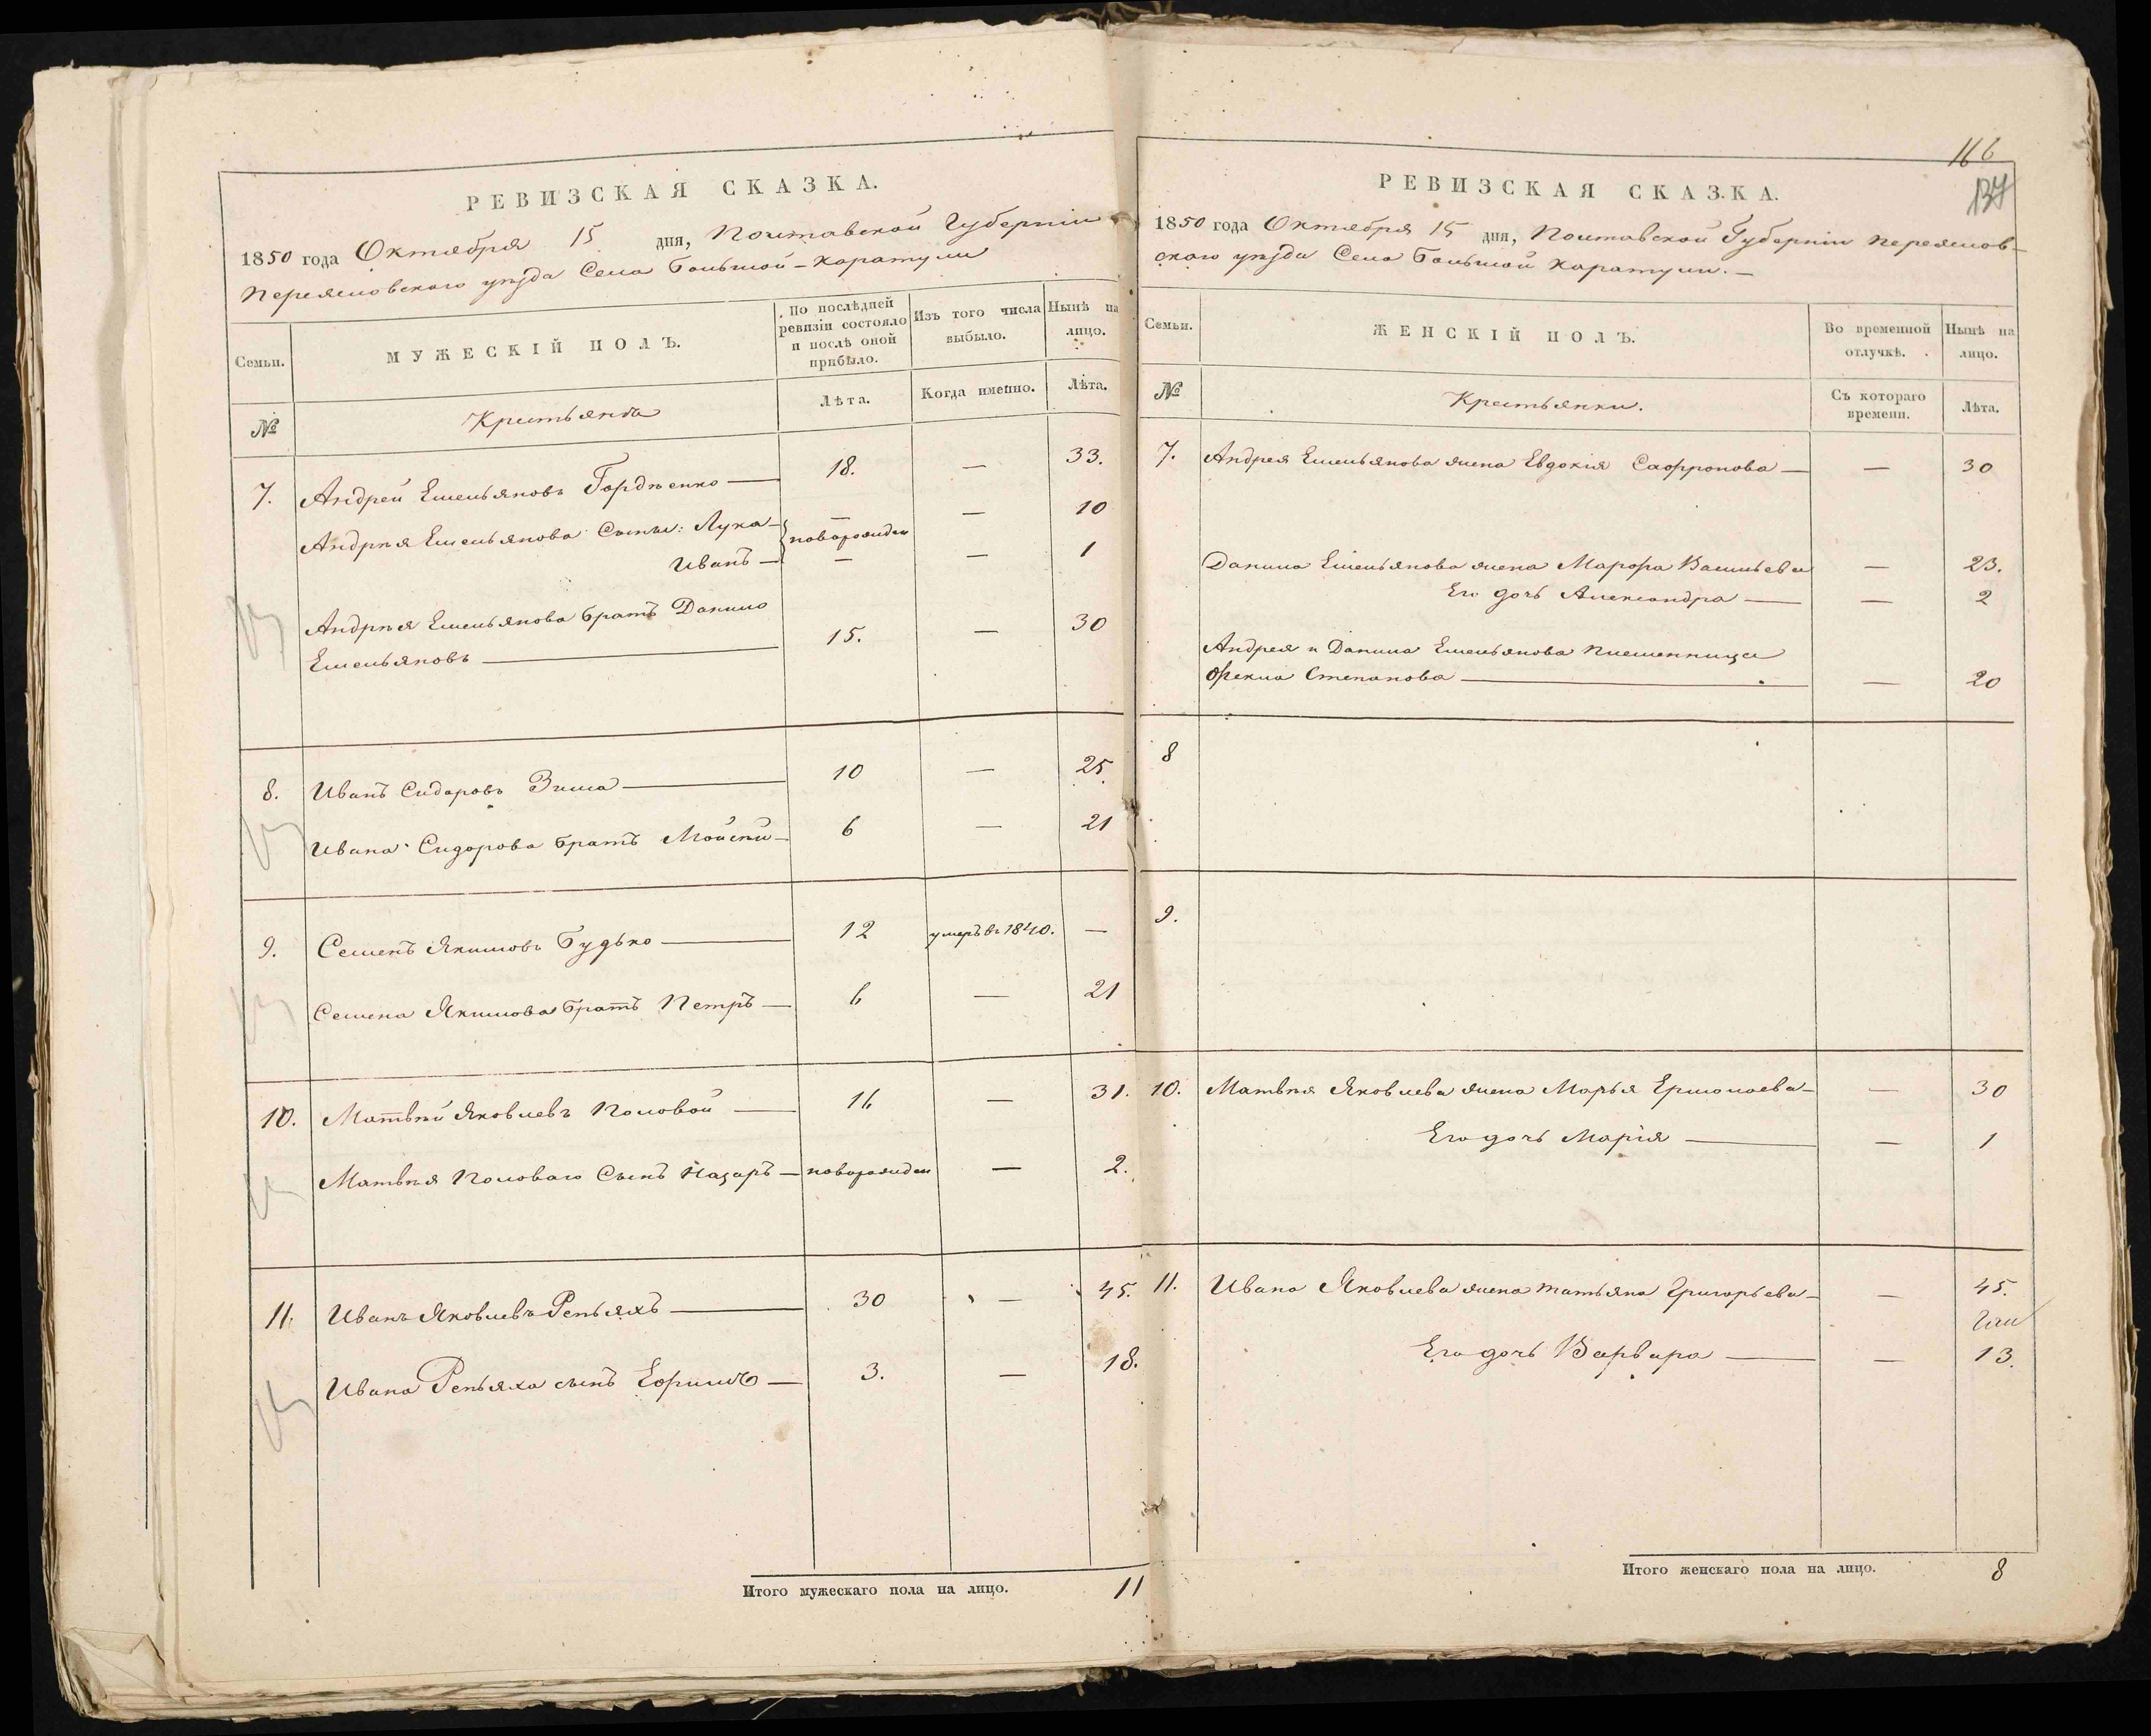 РЕВИЗСКАЯ СКАЗКА.
1850 года Октября 15 дня, Полтавской Губерніи
Переясловского уѣзда Села Большой-Каратули
Семьи.
МУЖЕСКІЙ ПОЛЪ.
По послѣдней ревизіи состояло и послѣ оной прибыло.
Изъ того числа выбыло.
Нынѣ на лицо.
№
Крестьянъ
Лѣта.
Когда именно.
Лѣта.
7. Андрей Емельяновъ Гордѣенко — 18. — 33.
Андрѣя Емельянова Сыны: Лука — новорожден — 10
Иванъ — — — 1
Андрѣя Емельянова братъ Данило
Емельяновъ — 15. — 30
8. Иванъ Сидоровъ Зима — 10 — 25.
Ивана Сидорова братъ Мойсѣй — 6 — 21
9. Семенъ Якимовъ Будько — 12 умеръ въ 1840. —
Семена Якимова братъ Петръ — 6 — 21
10. Матвѣй Яковлевъ Половой — 16 — 31.
Матвѣя Половаго Сынъ Назаръ — новорожден — 2.
11. Иванъ Яковлевъ Репьяхъ — 30 — 45.
Ивана Репьяха сынъ Ефимъ — 3. — 18.
Итого мужескаго пола на лицо. 11
116
137
РЕВИЗСКАЯ СКАЗКА.
1850 года Октября 15 дня, Полтавской Губерніи Переяслов-
ского уѣзда Села Большой Каратули. —
Семьи.
ЖЕНСКІЙ ПОЛЪ.
Во временной отлучкѣ.
Нынѣ на лицо.
№
Крестьянки.
Съ котораго времени.
Лѣта.
7. Андрея Емельянова жена Евдокія Сафронова — — 30
Данила Емельянова жена Марфа Васильева — 23.
Его дочь Александра — — 2
Андрея и Данила Емельянова племенница
Фекла Степанова — — 20
8
9.
10. Матвѣя Яковлева жена Марья Ермолаева — — 30
Его дочь Марія — — 1
11. Ивана Яковлева жена Татьяна Григорьева — — 45.
Его дочь Варвара — — 13.
Итого женскаго пола на лицо. 8